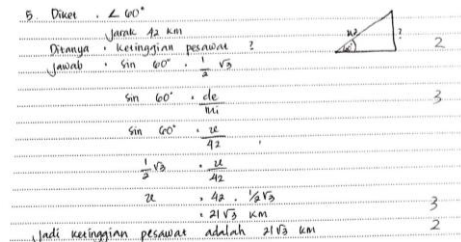 5. Diket : ∠ 60°
Jarak 42 km
42 ?
60°
Ditanya : Ketinggian pesawat ? 2
Jawab : Sin 60° = 1/2 √3
Sin 60° = de/mi 3
Sin 60° = x/42
1/2 √3 = x/42
x = 42 . 1/2 √3
= 21√3 km 3
Jadi ketinggian pesawat adalah 21√3 km 2